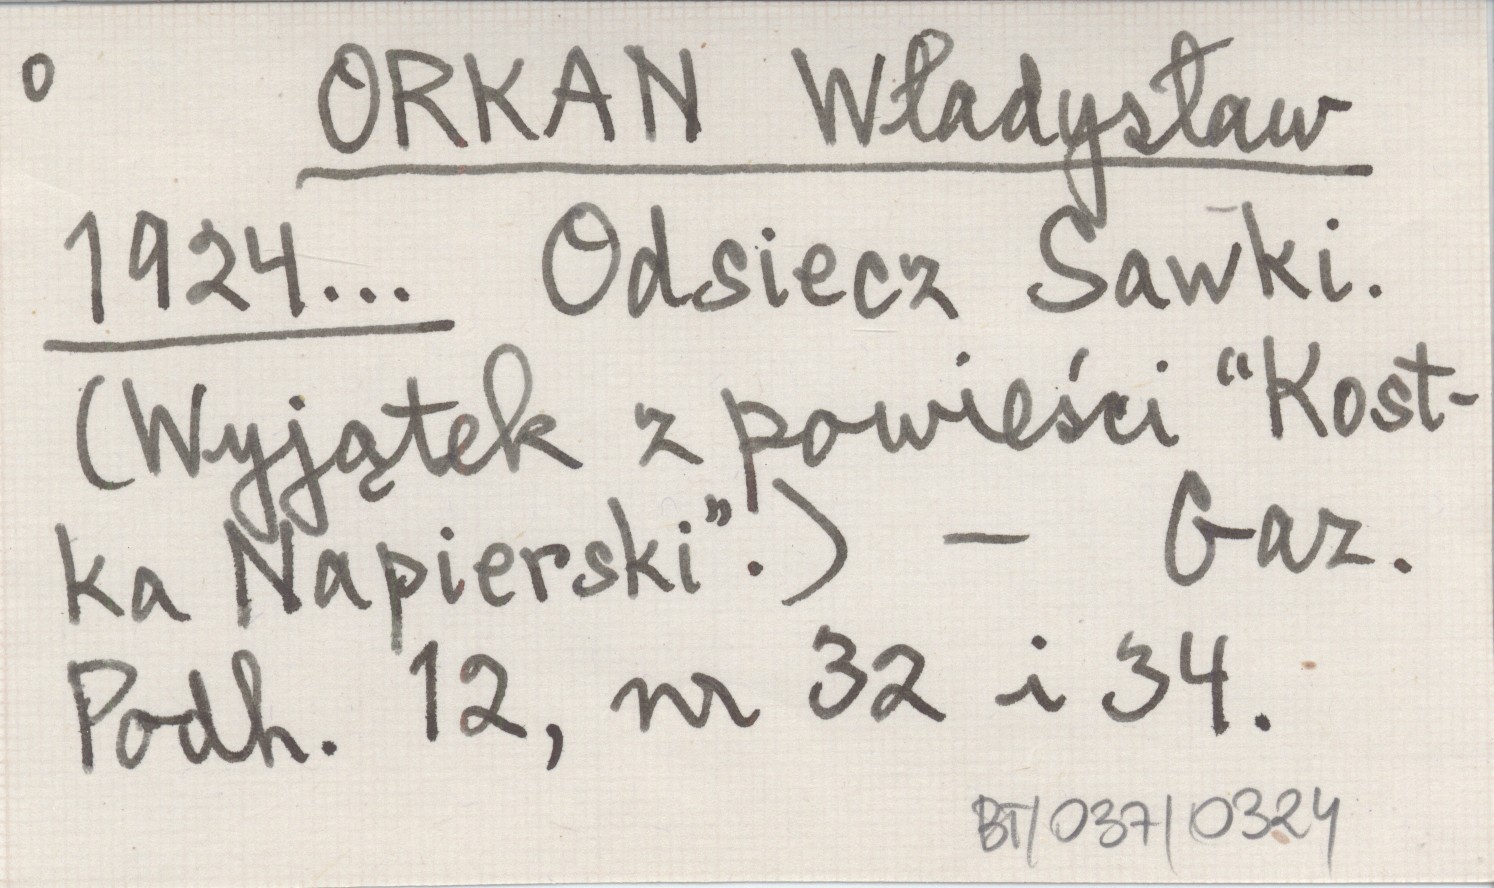 o
ORKAN Władysław
1924... Odsiecz Sawki.
(Wyjątek z powieści “Kost-
ka Napierski”.) – Gaz.
Podh. 12, nr 32 i 34.
BT/037/0324